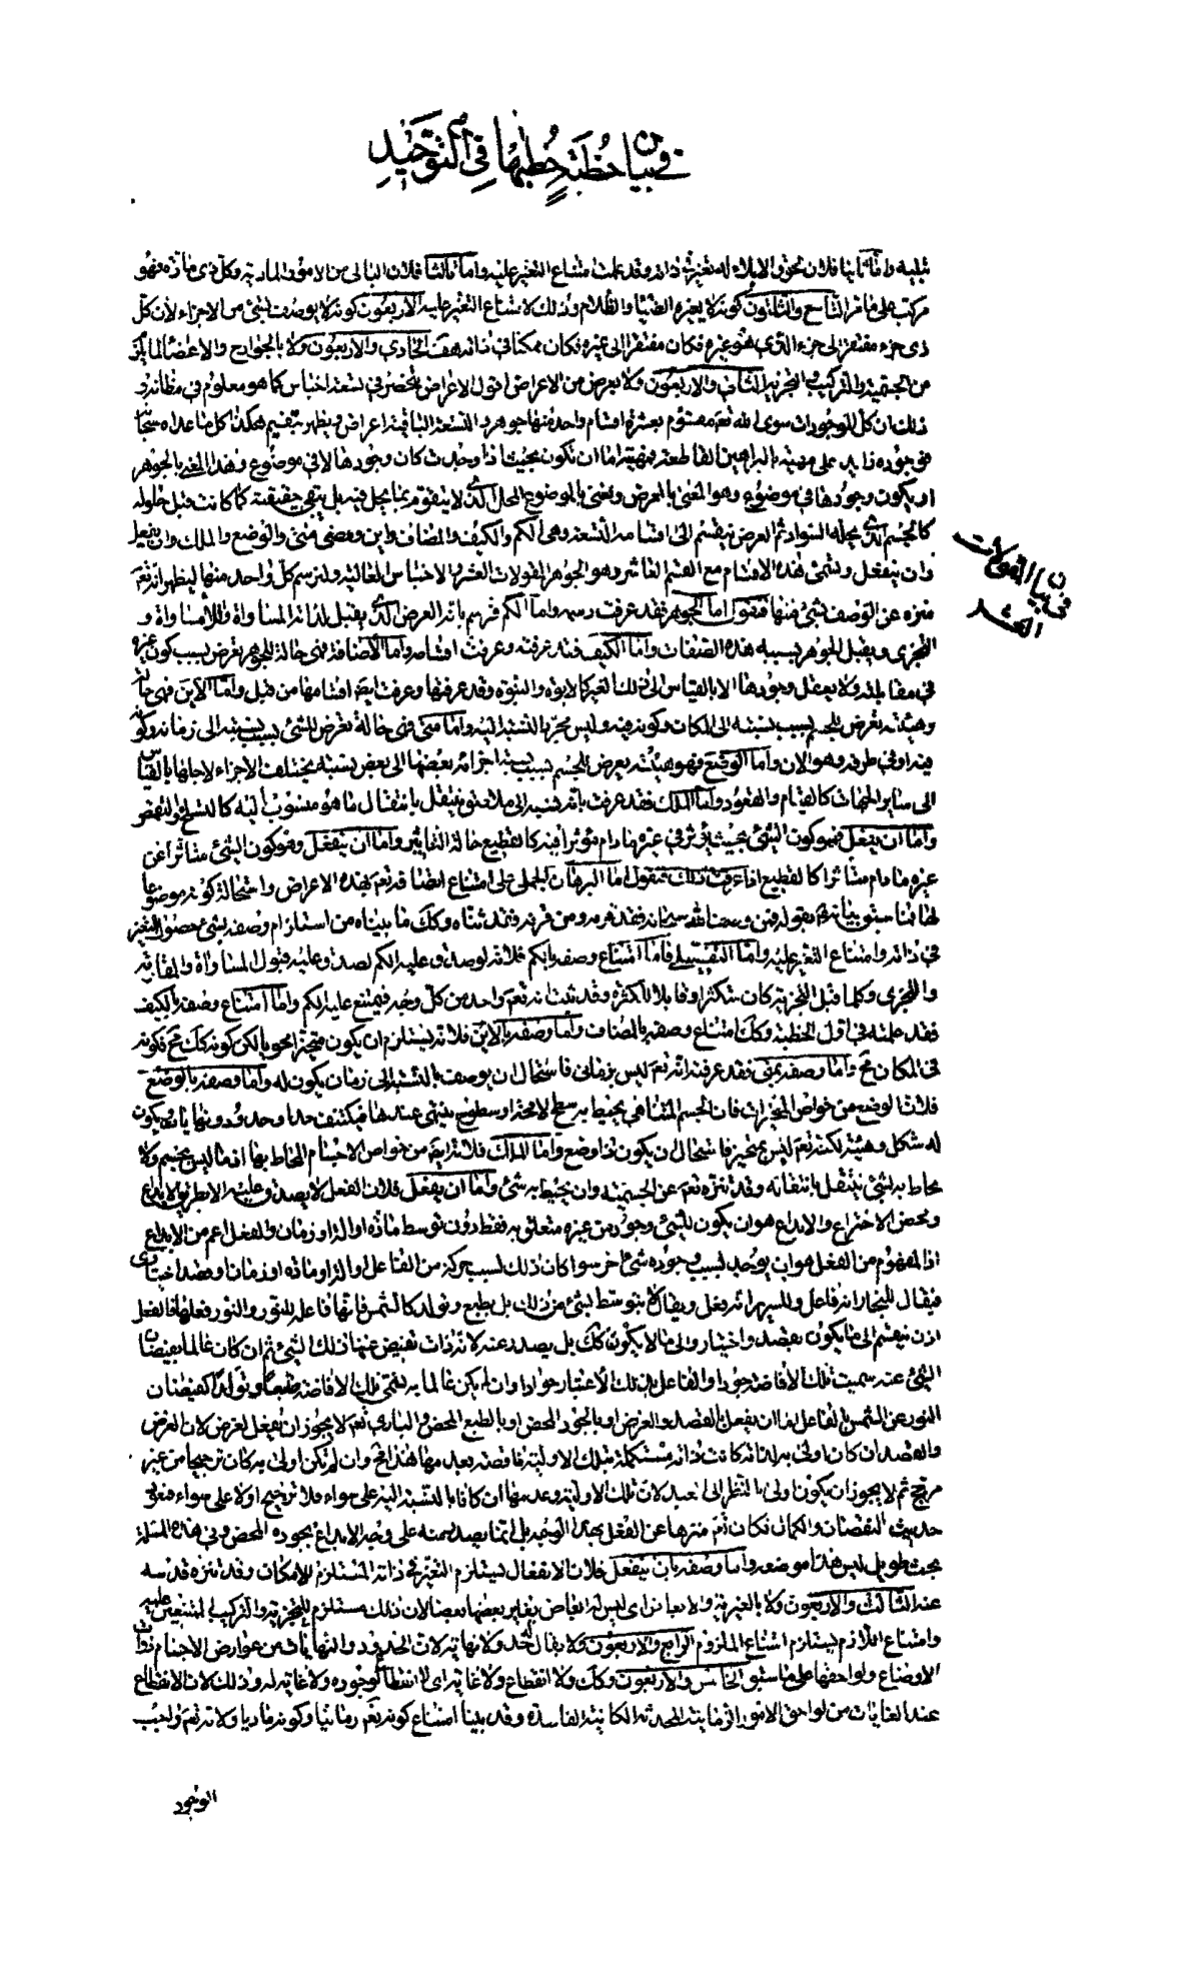 في بيان خطبة خطبها في التوحيد
تبليه وامّا ثانيا فلان لحوق الابلاء له تغيّر في ذاته وقد علمت امتناع التغير عليه وامّا ثالثا فلان البالى من الامور المادية وكل ذى مادّة فهو
مركب على ما مر التاسع والثلثون كونه لا يغيره الضياء والظلام وذلك لامتناع التغير عليه الاربعون كونه لا يوصف بشئ من الاجزاء لان كل
ذى جزء مفتقر الى جزءه الذى هو غيره فكان مفتقرا الى غيره فكان ممكنا في ذاته هف الحادى والاربعون ولا بالجوارح والاعضاء لما يلزم
من الجسمية والتركيب والتجزية الثانى والاربعون ولا بعرض من الاعراض اقول الاعراض تنحصر في تسعة اجناس كما هو معلوم في مظانه و
ذلك ان كل الموجودات سوى الله تعم مقسوم بعشرة اقسام واحد منها جوهر والتسعة الباقية اعراض ويظهر بتقسيم هكذا كل ما عداه سبحانه
فوجوده زايد على مهيته بالبراهين القاطعة فمهيته اما ان تكون بحيث اذا وجدت كان وجودها لا في موضوع وهذا المعنى بالجوهر
او يكون وجودها في موضوع وهو المعنى بالعرض ونعنى بالموضوع المحل الذى لا يتقوم بما يحل فيه بل يبقى حقيقته كما كانت قبل حلوله
كالجسم الذى يحله السواد ثم العرض ينقسم الى اقسامه التسعة وهى الكم والكيف والمضاف واين ومتى والوضع والملك وان يفعل
وان ينفعل وتسمى هذه الاقسام مع القسم العاشر وهو الجوهر المقولات العشر والاجناس العالية ولنرسم كل واحد منها ليظهر انه تعم
منزه عن الوصف بشئ منها فنقول اما الجوهر فقد عرفت رسمه واما الكم فرسم بانه العرض الذى يقبل لذاته المساواة واللامساواة و
التجزى ويقبل الجوهر بسببه هذه الصفات واما الكيف فقد عرفته وعرفت اقسامه واما الاضافة فهى حالة للجوهر تعرض بسبب كون غيره
في مقابلته ولا يعقل وجودها الا بالقياس الى ذلك الغير كالابوة والبنوة وقد عرفتها وعرفت ايضا اقسامها من قبل واما الاين فهى حالة
وهيئة تعرض للجسم بسبب نسبته الى المكان وكونه فيه وليس مجرد النسبة اليه واما متى فهى حالة تعرض للشئ بسبب نسبته الى زمانه وكونه
فيه او في طرفه وهو الان واما الوضع فهو هيئة يعرض للجسم بسبب نسبة اجزائه بعضها الى بعض نسبة يختلف الاجزاء لاجلها بالقياس
الى ساير الجهات كالقيام والقعود واما الملك فقد عرفت بانه نسبة الى ملاصق ينتقل بانتقال ما هو منسوب اليه كالتسلح والتقمص
واما ان يفعل فهو كون الشئ بحيث يؤثر في غيره ما دام مؤثرا فيه كالتقطيع حالة التاثير واما ان ينفعل وهو كون الشئ متاثرا عن
غيره ما دام متاثرا كالتقطيع اذا عرفت ذلك فنقول اما البرهان الجملى على امتناع اتصافه تعم بهذه الاعراض واستحالة كونه موضوعا
لها فما سبق بيانه في قوله فمن وصف الله سبحانه فقد قرنه ومن قرنه فقد ثناه وكك ما بيناه من استلزام وصفه بشئ حصول التغير
في ذاته وامتناع التغير عليه واما التفصيلى فاما امتناع وصفه بالكم فلانه لو صدق عليه الكم لصدق عليه قبول المساواة والمفاوتة
والتجزى وكلما قبل التجزية كان متكثرا او قابلا للكثرة وقد ثبت انه تعم واحد من كل وجه فيمتنع عليه الكم واما امتناع وصفه بالكيف
فقد علمته في اول الخطبة وكك امتناع وصفه بالمضاف واما وصفه بالاين فلانه يستلزم ان يكون متحيزا محويا لكن كونه كك مح فكونه
في المكان مح واما وصفه بمتى فقد عرفت انه تعم ليس بزمانى فاستحال ان يوصف بالنسبة الى زمان يكون له واما وصفه بالوضع
فلان الوضع من خواص المتحيزات فان الجسم المتناهى يحيط به سطح لا محة او سطوح ينتهى عندها فيكتنفه حد او حدود ونهايات ويكون
له شكل وهيئة لكنه تعم ليس بمتحيز فاستحال ان يكون ذا وضع واما الملك فلانه ايضا من خواص الاجسام المحاط بها اذ ما ليس بجسم ولا
محاط به لشئ ينتقل بانتقاله وقد تنزه تعم عن الجسمية وان يحيط به شئ واما ان يفعل فلان الفعل لا يصدق عليه الا بطريق الابداع
ومحض الاختراع والابداع هو ان يكون للشئ وجود من غيره متعلق به فقط دون توسط مادة او الة او زمان والفعل اعم من الابداع
اذ المفهوم من الفعل هو ان يوجد لسبب وجوده شئ اخر سوا كان ذلك بسبب حركة من الفاعل والة او مادة او زمان او قصد اختيارى
فيقال للنجار انه فاعل وللسرير انه فعل ويقال لا بتوسط شئ من ذلك بل بطبع وتولد كالشمس فانها فاعلة للنور والنور فعلها فالفعل
اذن ينقسم الى ما يكون بقصد واختيار والى ما لا يكون كك بل يصدر عنه لانه ذات تفيض عنها ذلك الشئ ثم ان كان عالما بفيضان
الشئ عنه سميت تلك الافاضة جودا والفاعل بذلك الاعتبار جوادا وان لم يكن عالما به يسمى تلك الافاضة طبعا وتولدا كفيضان
النور عن الشمس فالفاعل اما ان يفعل بالقصد والغرض او بالجود المحض او بالطبع المحض والبارى تعم لا يجوز ان يفعل لغرض لان الغرض
والقصد ان كان اولى به لذاته كانت ذاته مستكملة بتلك الاولية ناقصة بعدمها هذا مح وان لم تكن اولى به كان ترجيحا من غير
مرجح ثم لا يجوز ان يكون اولى بالنظر الى العبد لان تلك الاولية وعدمها ان كانا بالنسبة اليه على سواء فلا ترجيح او لا على سواء فيعود
حديث النقصان والكمال فكان تعم منزها عن الفعل بهذا الوجه بل انما يصدق منه على وجه الابداع بجوده المحض وفى هذه المسئلة
بحث طويل ليس هذا موضعه واما وصفه بان ينفعل فلان الانفعال يستلزم التغير في ذاته المستلزم للامكان وقد تنزه قدسه
عنه الثالث والاربعون ولا بالغيرية والابعاض اى ليس له ابعاض يغاير بعضها بعضا لان ذلك مستلزم للتجزية والتركيب الممتنعين عليه
وامتناع اللازم يستلزم امتناع الملزوم الرابع والاربعون ولا يقال له حد ولا نهاية لان الحدود والنهايات من عوارض الاجسام ذوات
الاوضاع ولواحقها على ما سبق الخامس والاربعون وكك ولا انقطاع ولا غاية اى لا انقطاع لوجوده ولا غاية له وذلك لان الانقطاع
عند الغايات من لواحق الامور الزمانية المحدثة الكاينة الفاسدة وقد بينا امتناع كونه تعم زمانيا وكونه ماديا ولانه تعم واجب
الوجود
في بيان المقولات
العشر